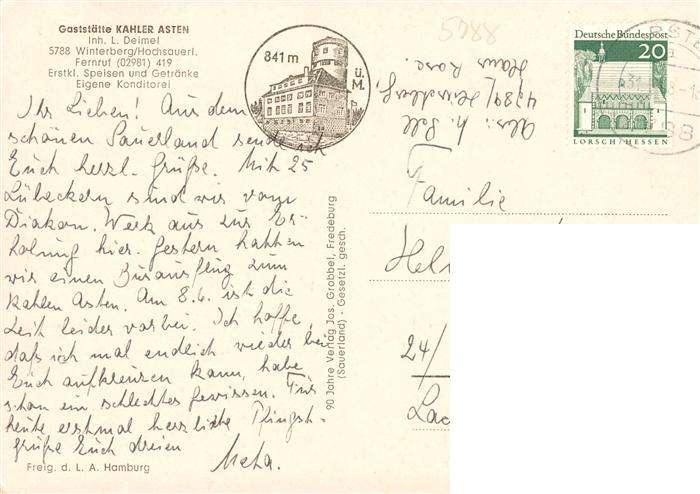 Gaststätte KAHLER ASTEN
Inh. L. Deimel
5788 Winterberg/Hochsauerl.
Fernruf (02981) 419
Erstkl. Speisen und Getränke
Eigene Konditorei
841 m
ü.
M.
5788
Deutsche Bundespost
20
LORSCH/HESSEN
Abs.:
Haus Rose.
Ihr Lieben! Aus dem
schönen Sauerland sende ich
Euch herzl. Grüße. Mit 25
Lübeckern sind wir vom
Diakon. Werk aus zur Er-
holung hier. Gestern hatten
wir einen Busausflug zum
kahlen Asten. Am 8.6. ist die
Zeit leider vorbei. Ich hoffe,
daß ich mal endlich wieder bei
Euch aufkreuzen kann, habe
schon ein schlechtes Gewissen. Für
heute erstmal herzliche Pfingst-
grüße Euch dreien
Meta.
Familie
Hel
24/
Lac
90 Jahre Verlag Jos. Grobbel, Fredeburg
(Sauerland) - Gesetzl. gesch.
Freig. d. L. A. Hamburg